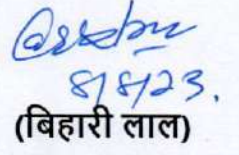 8/8/23.
(बिहारी लाल)